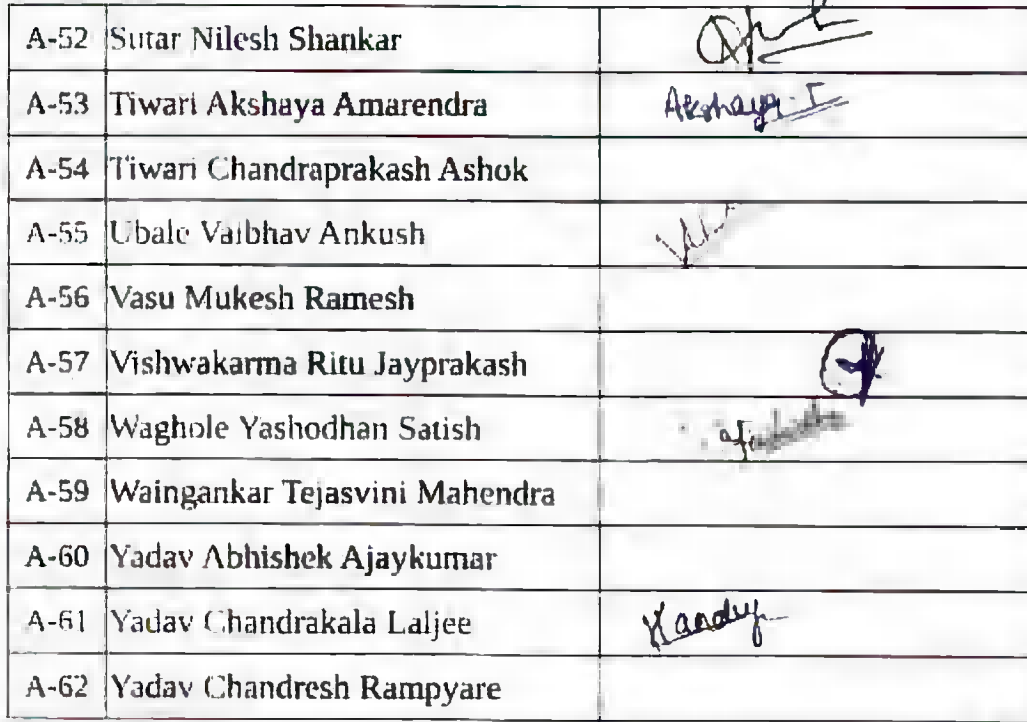 A-52 Sutar Nilesh Shankar
A-53 Tiwari Akshaya Amarendra Akshaya. T
A-54 Tiwari Chandraprakash Ashok
A-55 Ubale Vaibhav Ankush
A-56 Vasu Mukesh Ramesh
A-57 Vishwakarma Ritu Jayprakash
A-58 Waghole Yashodhan Satish
A-59 Waingankar Tejasvini Mahendra
A-60 Yadav Abhishek Ajaykumar
A-61 Yadav Chandrakala Laljee
A-62 Yadav Chandresh Rampyare